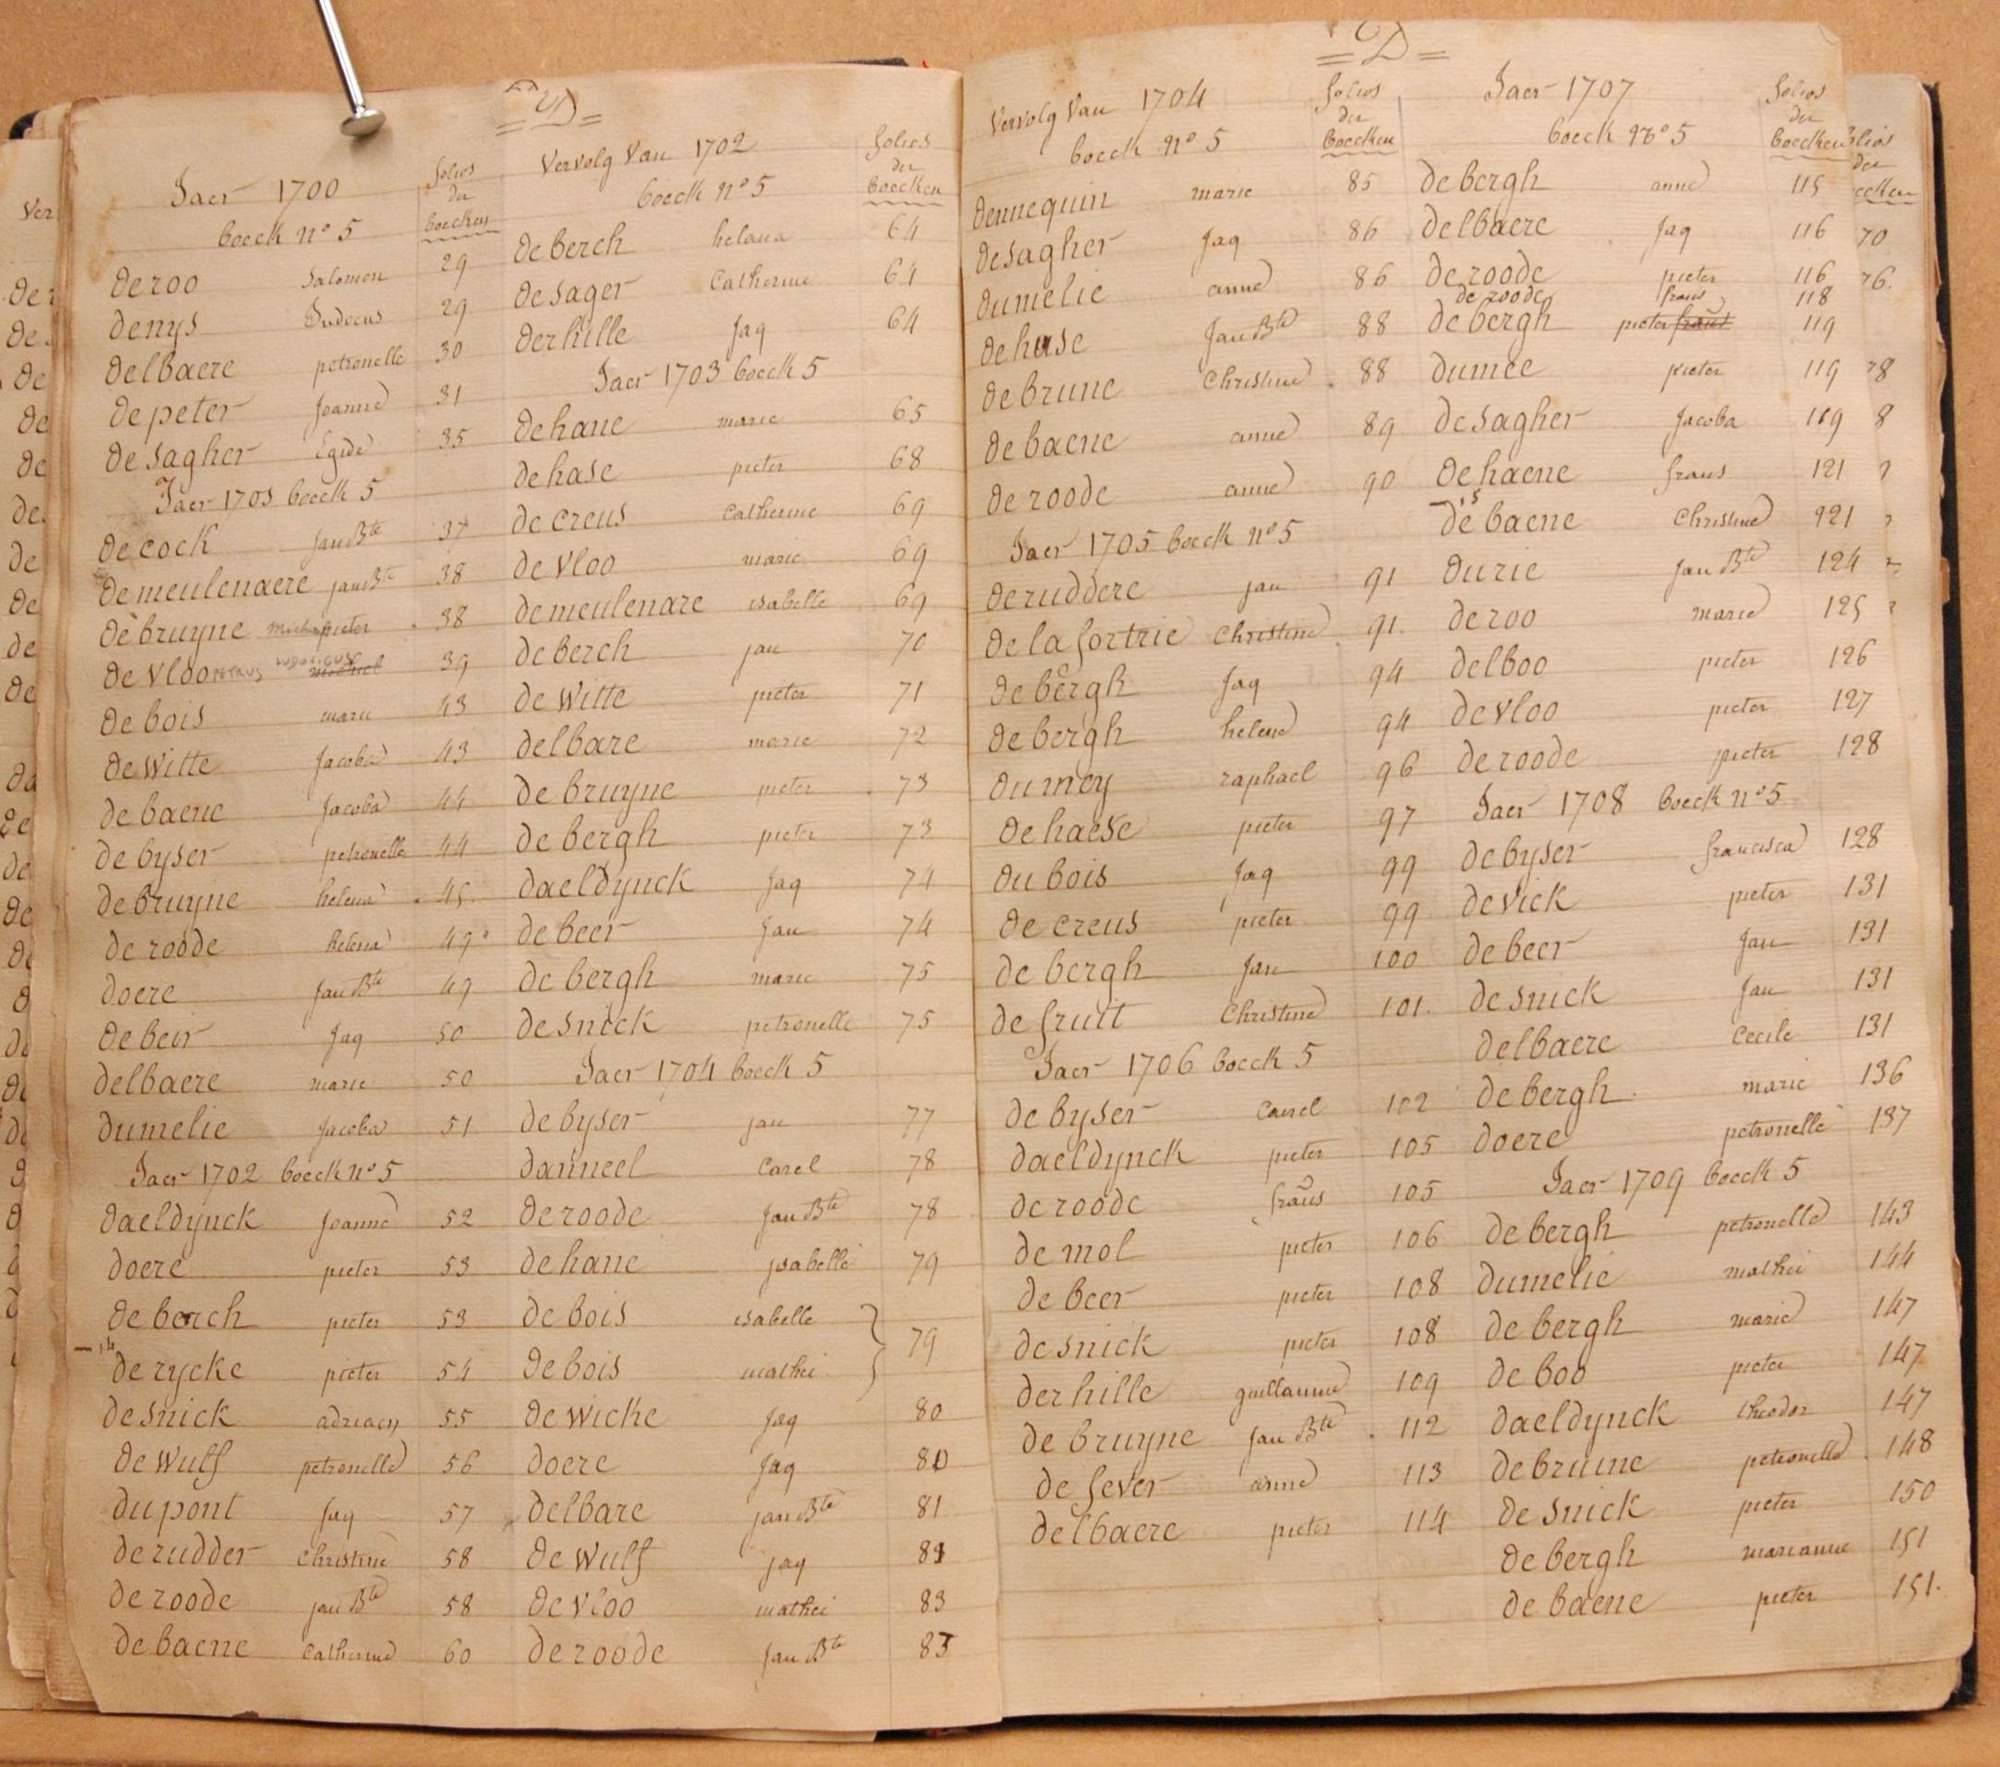 = D =
Jaer 1700
boeck nº 5
folios
der
boecken
deroo Salomon 29
denys Judocus 29
delbaere petronelle 30
depeter Joanne 31
desagher Egide 35
Jaer 1701 boeck 5
decock Jan Bte 37
demeulenaere jan Bte 38
debruyne pieter 38
devloo PETRUS LUDOVICUS michiel 39
debois marie 43
dewitte Jacoba 43
debaene Jacoba 44
debyser petronelle 44
debruyne helena 45
deroode helena 49
doere Jan Bte 49
debeir Jaq 50
delbaere marie 50
dumelie Jacoba 51
Jaer 1702 boeck nº 5
daeldynck Joanne 52
doere pieter 53
deberch pieter 53
derycke pieter 54
desnick adriaen 55
dewulf petronelle 56
dupont Jaq 57
derudder Christine 58
deroode jan Bte 58
debaene Catherine 60
Vervolg Van 1702
boeck nº 5
folios
der
boecken
deberch helana 64
desager Catherine 64
derhille Jaq 64
Jaer 1703 boeck 5
dehane marie 65
dehase pieter 68
decreus Catherine 69
devloo marie 69
demeulenare isabelle 69
deberch jan 70
dewitte pieter 71
delbare marie 72
debruyne pieter 73
debergh pieter 73
daeldynck Jaq 74
debeer Jan 74
debergh marie 75
desnick petronelle 75
Jaer 1704 boeck 5
debyser jan 77
danneel Carel 78
deroode Jan Bte 78
dehane ysabelle 79
debois isabelle
debois mathei } 79
dewicke Jaq 80
doere Jaq 80
delbare jan Bte 81
dewulf jaq 81
devloo mathei 83
deroode Jan Bte 83
= D =
Vervolg Van 1704
boeck nº 5
folios
der
boecken
dennequin marie 85
desagher Jaq 86
dumelie anne 86
dehase Jan Bte 88
debrune Christine 88
debaene anne 89
deroode anne 90
Jaer 1705 boeck nº 5
deruddere jan 91
delafortrie Christine 91
debergh Jaq 94
debergh helene 94
dumey raphael 96
dehaese pieter 97
dubois Jaq 99
decreus pieter 99
debergh Jan 100
defruit Christine 101
Jaer 1706 boeck 5
debyser Carel 102
daeldynck pieter 105
deroode frans 105
demol pieter 106
debeer pieter 108
desnick pieter 108
derhille guillaume 109
debruyne Jan Bte 112
defever anne 113
delbaere pieter 114
Jaer 1707
boeck nº 5
folios
der
boecken
debergh anne 115
delbaere Jaq 116
deroode pieter 116
de roode frans 118
debergh pieter frans 119
dumee pieter 119
desagher Jacoba 119
dehaene frans 121
debaene Christine 121
durie Jan Bte 124
deroo marie 125
delboo pieter 126
devloo pieter 127
deroode pieter 128
Jaer 1708 boeck nº 5
debyser francisca 128
devick pieter 131
debeer Jan 131
desnick Jan 131
delbaere Cecile 131
debergh marie 136
doere petronelle 137
Jaer 1709 boeck 5
debergh petronelle 143
dumelie mathei 144
debergh marie 147
deboo pieter 147
daeldynck theodor 147
debruine petronelle 148
desnick pieter 150
debergh marianne 151
debaene pieter 151